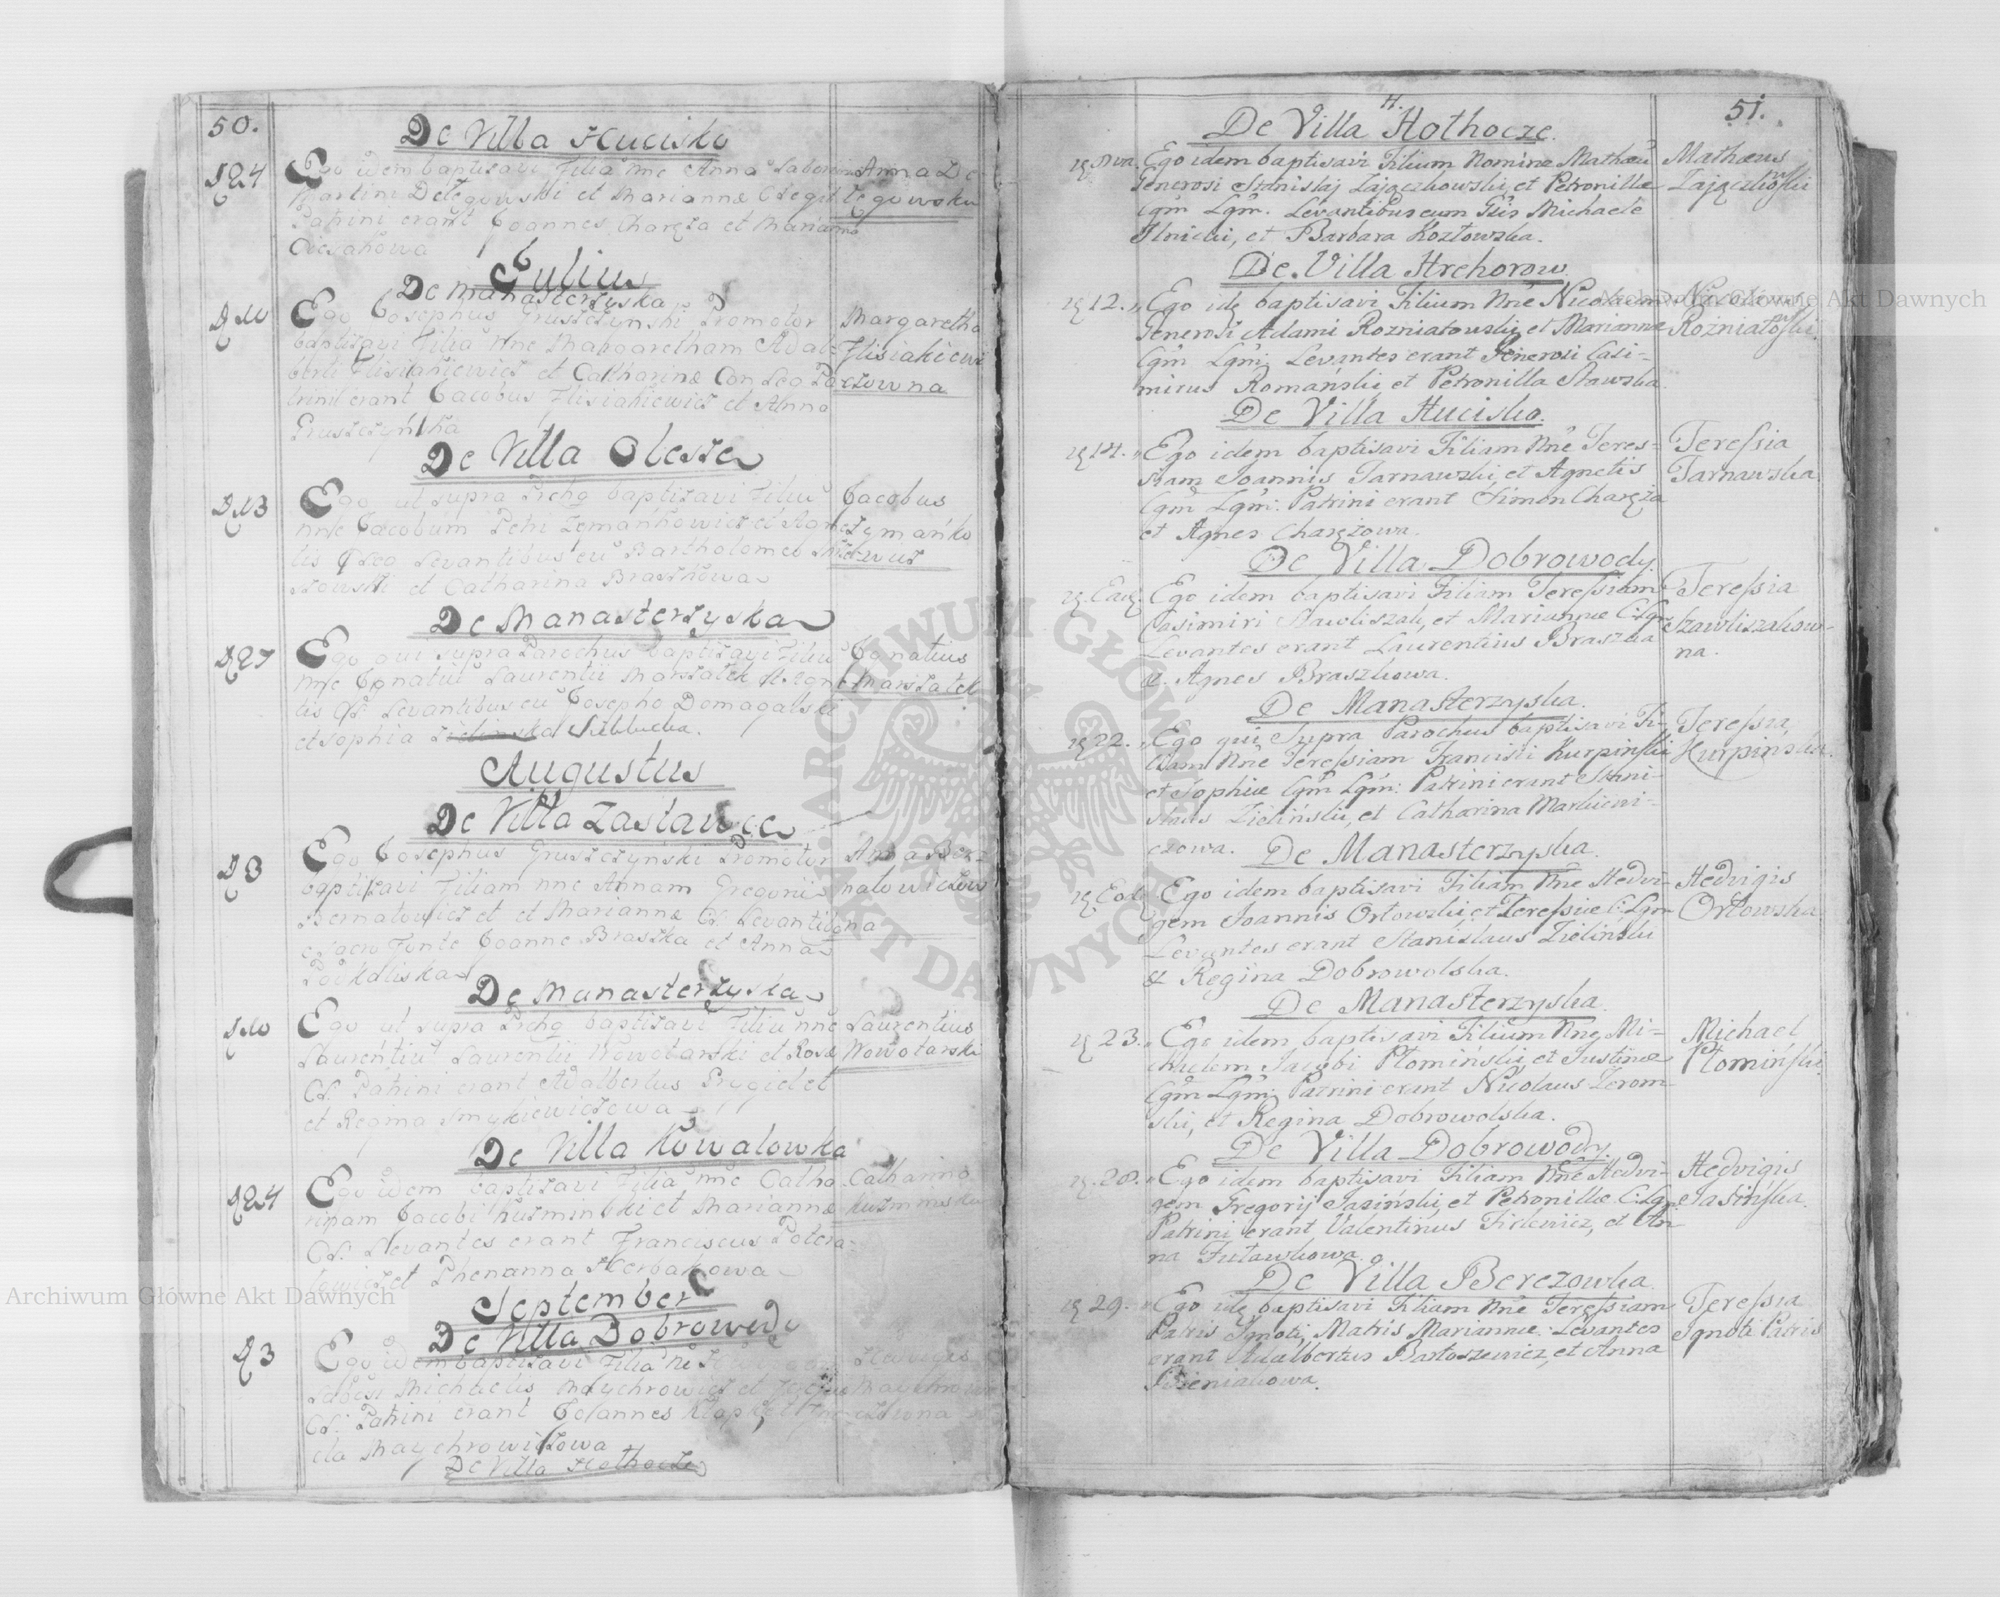 50.
De Villa Hucisko
D 24
Ego idem baptisavi Filia nne Anna Laboriosi
Martini Detęgowski et Mariannæ C: Legit:
Patrini erant Joannes Charęza et Marianna
Anna De-
tęgowska
Julius
De Manasterzyska
D 10
Ego Josephus Gruszczynski Promotor
baptisavi Filia nne Margaretham Adal-
berti Flisiakiewicz et Catharinæ Con Leg Pa-
trini erant Jacobus Flisiakiewicz et Anna
Gruszczyńska
Margaretha
Flisiakiewi
czowna
De Villa Olesza
D 13
Ego ut supra Prchg baptisavi Filiu
nne Jacobum Petri Szmańkowicz et Agne-
tis C Leg Levantibus eu Bartholomeo
et Catharina Braszkowa
Jacobus
De Manasterzyska
D 27
Ego qui supra Parochus baptisavi Filiu
nne Ignatiu Laurentii Marszałek et Agne-
tis CL: Levantibus eu Josepho Domagalski
et Sophia
Ignatius
Marszałek
Augustus
De Villa Zastawce
D 8
Ego Josephus Gruszczyński Promotor
baptisavi Filiam nne Annam Gregorii
Bernatowicz et Mariannæ CL: Levantib
e sacro Fonte Joanne Braszka et Anna
Anna Ber-
natowiczow
na
De Manasterzyska
D 10
Ego ut supra Prchg baptisavi Filiu nne
Laurentiu Laurentii Nowotarski et Rosæ
CL: Patrini erant Adalbertus
et Regina Smykiewiczowa
Laurentius
Nowotarski
De Villa Kowalowka
D 24
Ego idem baptisavi Filia nne Catha-
rinam Jacobi Kuzminski et Mariannæ
CL: Levantes erant Franciscus Potera-
Catharina
Kuzminska
September
De Villa Dobrowody
D 3
Ego idem baptisavi Filia
Michaelis Maychrowicz et
CL: Patrini erant Johannes
Maychrowiczowa
De Villa Hothocze
51.
H.
De Villa Hothocze.
Ego idem baptisavi Filium Nomine Mathæu
Generosi Stanislaj Zajączkowski, et Petronillæ
Cgm Lgm. Levantibus eum Gsis Michaele
Ilnicki, et Barbara Kozłowska.
Mathæus
Zajączkowski
De Villa Hrehorow
12.
Ego idę baptisavi Filium Nne Nicolaum
Generosi Adami Rozniatowski, et Mariannæ
Cgm Lgm: Levantes erant Generosi Casi-
mirus Romański, et Petronilla Stawska.
Nicolaus
Rozniatowski
De Villa Hucisko.
14.
Ego idem baptisavi Filiam Nne Teres-
siam Joannis Tarnawski, et Agnetis
Cgm Lgm: Patrini erant Simon Charęza
et Agnes Charęzowa.
Teressia
Tarnawska
De Villa Dobrowody.
Ego idem baptisavi Filiam Teressiam
Casimiri Szawliszak, et Mariannæ C: Lgm
Levantes erant Laurentius Braszka
et Agnes Braszkowa.
Teressia
Szawliszakow-
na.
De Manasterzyska.
22.
Ego qui supra Parochus baptisavi Fi-
liam Nne Teressiam Francisci Kurpinski
et Sophiæ Cgm Lgm: Patrini erant Stani-
slaus Zieliński, et Catharina Markiewi-
czowa.
Teressia
Kurpinska.
De Manasterzyska.
Ego idem baptisavi Filiam Nne Hedvi-
gem Joannis Orłowski, et Teressiæ C: Lgm
Levantes erant Stanislaus Zielinski
& Regina Dobrowolska.
Hedvigis
Orłowska
De Manasterzyska
23.
Ego idem baptisavi Filium Nne Mi-
chælem Jacobi Płomiński, et Justinæ
Cgm Lgm: Patrini erant Nicolaus Zerom-
ski, et Regina Dobrowolska.
Michael
Płomiński
De Villa Dobrowody.
20.
Ego idem baptisavi Filiam Nne Hedvi-
gem Gregorij Jasiński, et Petronillæ C: Lgm
Patrini erant Valentinus Firlewicz, et An-
na Futawkowa.
Hedvigis
Jasińska.
De Villa Berezowka
29.
Ego idę baptisavi Filiam Nne Teressiam
Patris Ignoti, Matris Mariannæ: Levantes
erant Adalbertus Bartoszewicz, et Anna
Teressia
Ignoti Patris
ARCHIWUM GŁÓWNE AKT DAWNYCH
Archiwum Główne Akt Dawnych
Archiwum Główne Akt Dawnych